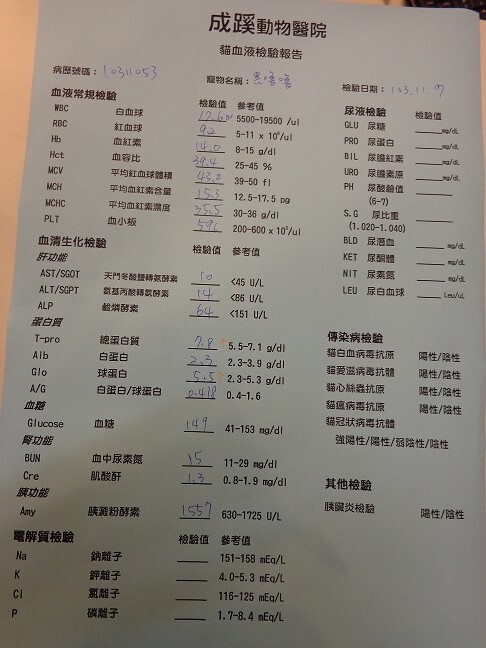 成蹊動物醫院
貓血液檢驗報告
病歷號碼：10311053 寵物名稱：黑嚕嚕 檢驗日期：103.11.17
血液常規檢驗 檢驗值 參考值
WBC 白血球 5500-19500 /ul
RBC 紅血球 9.2 5-11 x 10⁶/ul
Hb 血紅素 14.0 8-15 g/dl
Hct 血容比 39.4 25-45 %
MCV 平均紅血球體積 43.2 39-50 fl
MCH 平均血紅素含量 15.3 12.5-17.5 pg
MCHC 平均血紅素濃度 35.5 30-36 g/dl
PLT 血小板 591 200-600 x 10³/ul
血清生化檢驗 檢驗值 參考值
肝功能
AST/SGOT 天門冬酸鹽轉氨酵素 10 <45 U/L
ALT/SGPT 氨基丙酸轉氨酵素 14 <86 U/L
ALP 鹼燐酵素 64 <151 U/L
蛋白質
T-pro 總蛋白質 7.8 5.5-7.1 g/dl
Alb 白蛋白 2.3 2.3-3.9 g/dl
Glo 球蛋白 5.5 2.3-5.3 g/dl
A/G 白蛋白/球蛋白 0.418 0.4-1.6
血糖
Glucose 血糖 149 41-153 mg/dl
腎功能
BUN 血中尿素氮 15 11-29 mg/dl
Cre 肌酸酐 1.3 0.8-1.9 mg/dl
胰功能
Amy 胰澱粉酵素 1557 630-1725 U/L
電解質檢驗 檢驗值 參考值
Na 鈉離子 151-158 mEq/L
K 鉀離子 4.0-5.3 mEq/L
Cl 氯離子 116-125 mEq/L
P 磷離子 1.7-8.4 mEq/L
尿液檢驗 檢驗值
GLU 尿糖 mg/dL
PRO 尿蛋白 mg/dL
BIL 尿膽紅素 mg/dL
URO 尿膽素原 mg/dL
PH 尿酸鹼值
(6-7)
S.G 尿比重
(1.020-1.040)
BLD 尿潛血 mg/dL
KET 尿酮體 mg/dL
NIT 尿素氮 mg/dL
LEU 尿白血球 leu/uL
傳染病檢驗
貓白血病毒抗原 陽性/陰性
貓愛滋病毒抗體 陽性/陰性
貓心絲蟲抗原 陽性/陰性
貓瘟病毒抗原 陽性/陰性
貓冠狀病毒抗體
強陽性/陽性/弱陰性/陰性
其他檢驗
胰臟炎檢驗 陽性/陰性